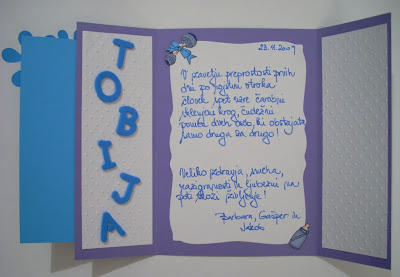 TOBIJA
23.11.2009
V zavetju preprostosti prvih
dni po rojstvu otroka
človek spet uzre čarobni
sklenjeni krog, čudežni
dveh oseb, ki obstajata
samo druga za drugo!
Veliko zdravja, smeha,
razigranosti in ljubezni na
poti skozi življenje!
Barbara, Gašper in
Jakob